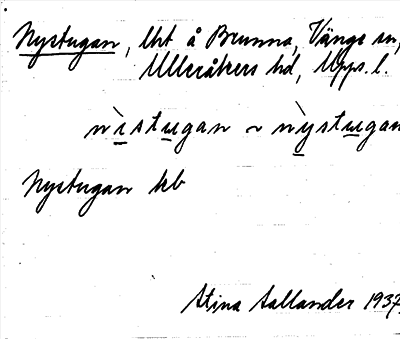 Nystugan, lht å Brunna, Vänge sn,
Ulleråkers hd, Upps. l.
nìstugan ~ nỳstugan
Nystugan kb
Stina Aallander 1937